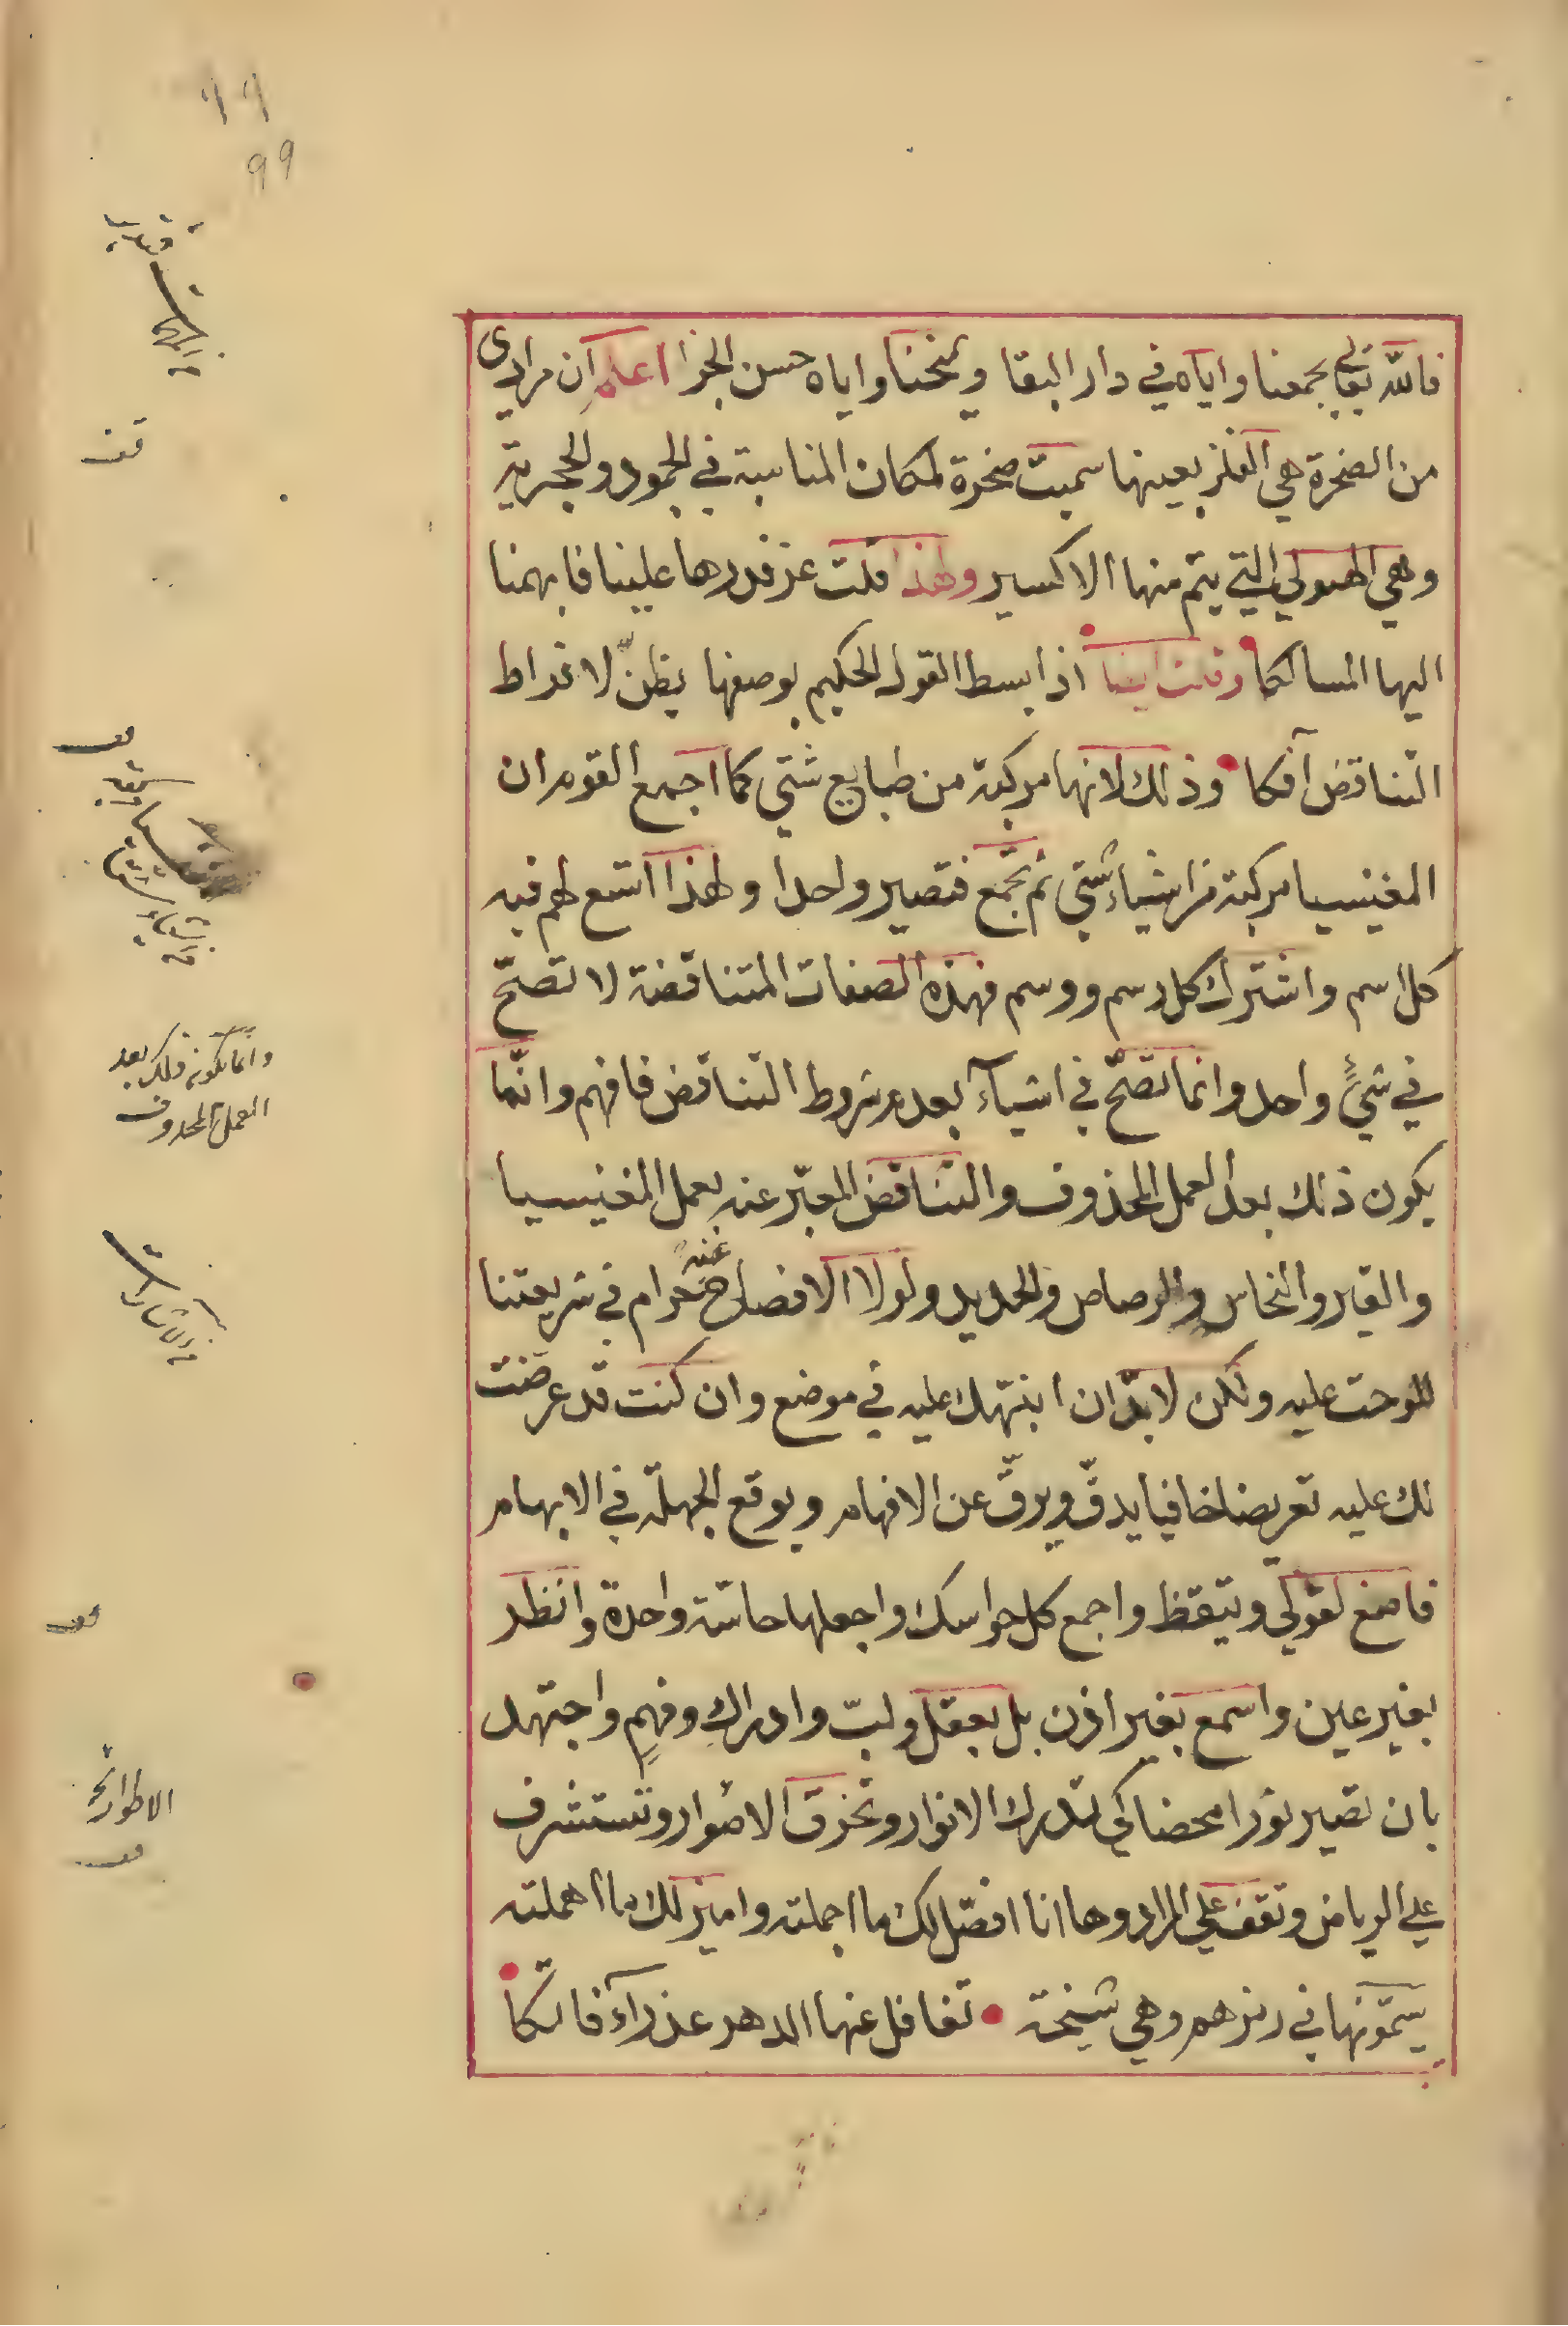 99
فالله تعالى يجمعنا واياه في دار البقا ويمنحنا واياه حسن الجزا اعلم ان مرادى
من الصخرة هي الفلز بعينها سميت صخرة لمكان المناسبة في الجمود والحجرية
وهي الهيولي التي يتم منها الاكسير ولهذا قلت عز قدرها علينا فابهمنا
اليها المسالكا وقلت ايضا اذا بسط القول الحكيم بوصفها يظنّ لا غراط
التناقض آفكا وذلك لانها مركبة من طبايع شتي كما اجمع القوم ان
المغنيسيا مركبة من اشياء شتي ثم تجمع فتصير واحدا ولهذا اتسع لهم فيه
كل اسم واشترك كل رسم ووسم فهذه الصفات المتناقضة لا تصحّ
في شيءٍ واحد وانما تصحّ في اشيآء بعدم شروط التناقض فافهم وانّما
يكون ذلك بعد العمل المحذوف والتناقض المعبّر عنه بعمل المغنيسيا
والقير والنحاس والرصاص والحديد ولولا الافصاح عنه حرام في شريعتنا
للوحت عليه ولكن لا بدّ ان انبّهك عليه في موضع وان كنت قد عرضت
لك عليه تعريضا خافيا يدقّ ويرقّ عن الافهام ويوقع الجهلة في الابهام
فاصغ لقولي وتيقظ واجمع كل حواسك واجعلها حاسّة واحدة وانظر
بغير عين واسمع بغير اذن بل بعقل ولبّ وادراك وفهمٍ واجتهد
بان تصير نورا محضا كي تدرك الانوار وتخرق الاصوار وتستشرف
علي الرياض وتقف علي المراد وها انا افصّل لك ما اجملته واميز لك ما اهملته
يسمّونها في رمزهم وهي شيخة تغافل عنها الدهر عذرآء فالكا
قف
وانما يكون ذلك بعد
العمل المحذوف
قف